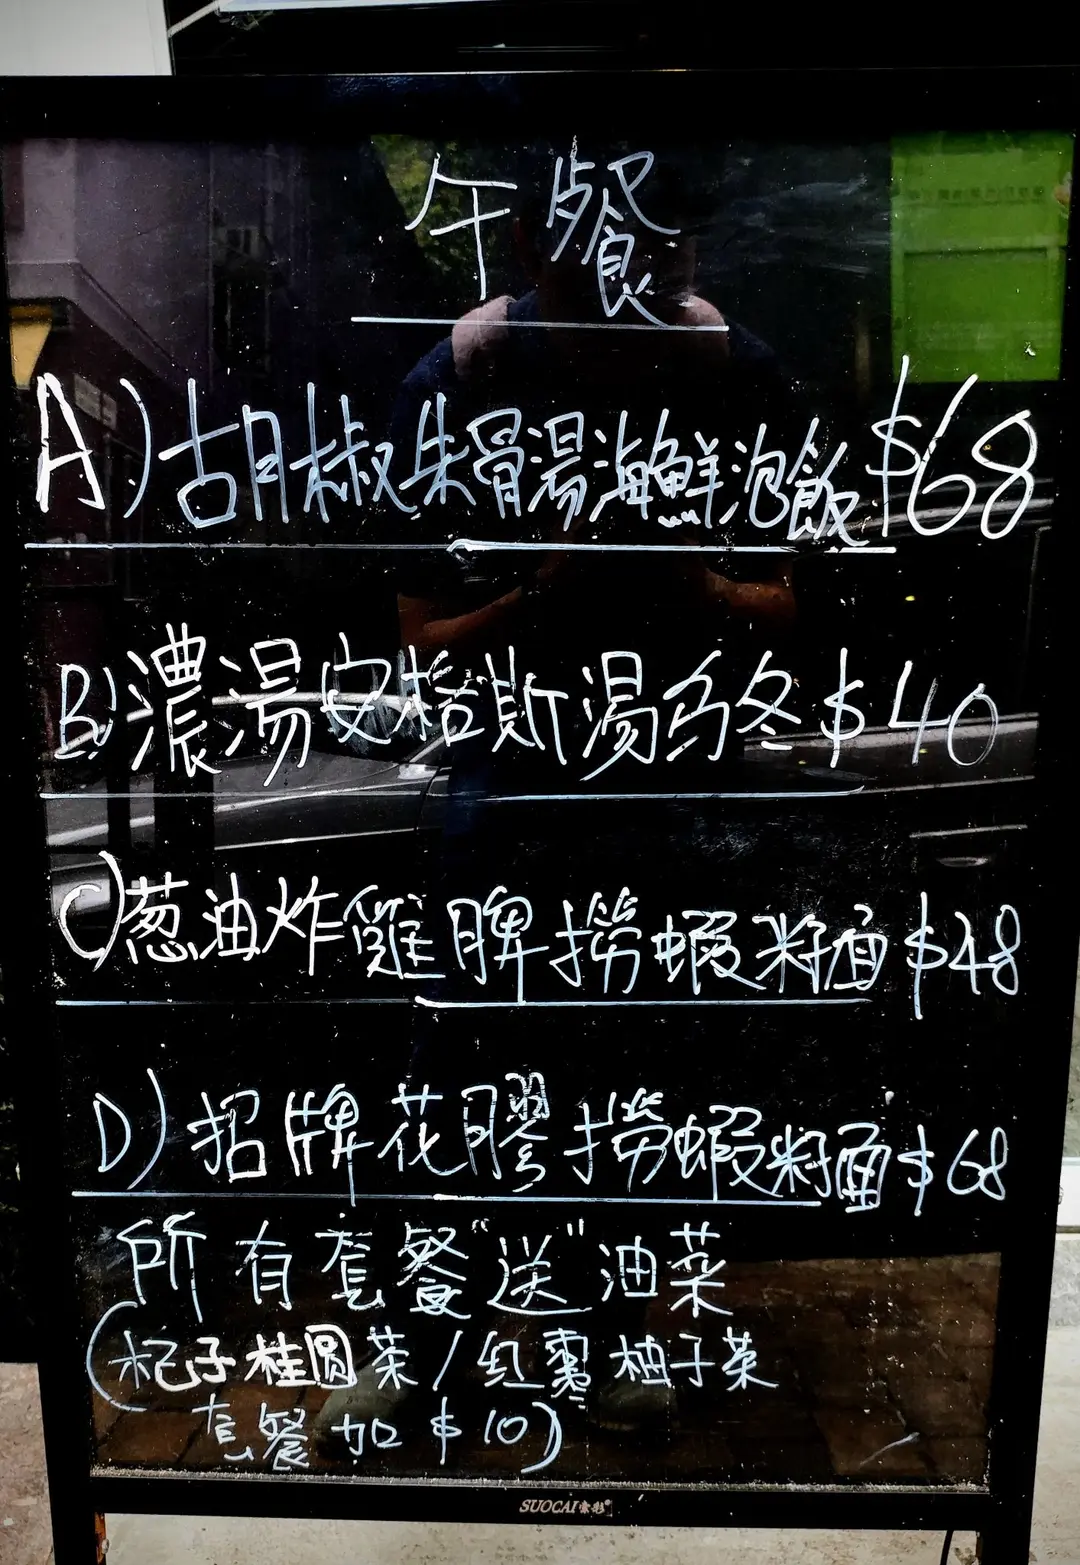 午餐
A) 胡椒朱骨湯海鮮泡飯 $68
B) 濃湯安格斯湯烏冬 $40
C) 葱油炸雞髀撈蝦籽面 $48
D) 招牌花膠撈蝦籽面 $68
所有套餐"送"油菜
(杞子桂圓茶/红棗柚子茶
套餐加 $10)
SUOCAI 索彩